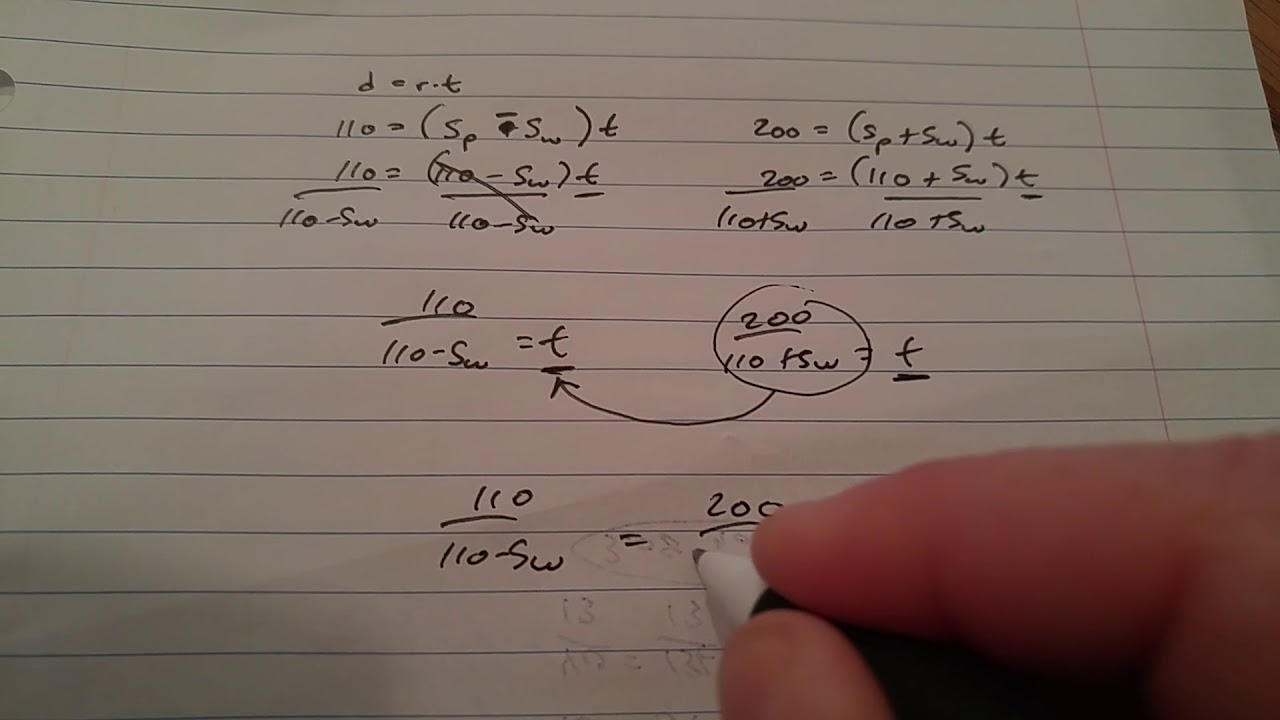 d = r·t
110 = (Sp - Sw)t
200 = (Sp + Sw)t
110 = (110 - Sw)t
110-Sw 110-Sw
200 = (110 + Sw)t
110+Sw 110+Sw
110
110-Sw = t
200
110+Sw = t
110
110-Sw
=
200